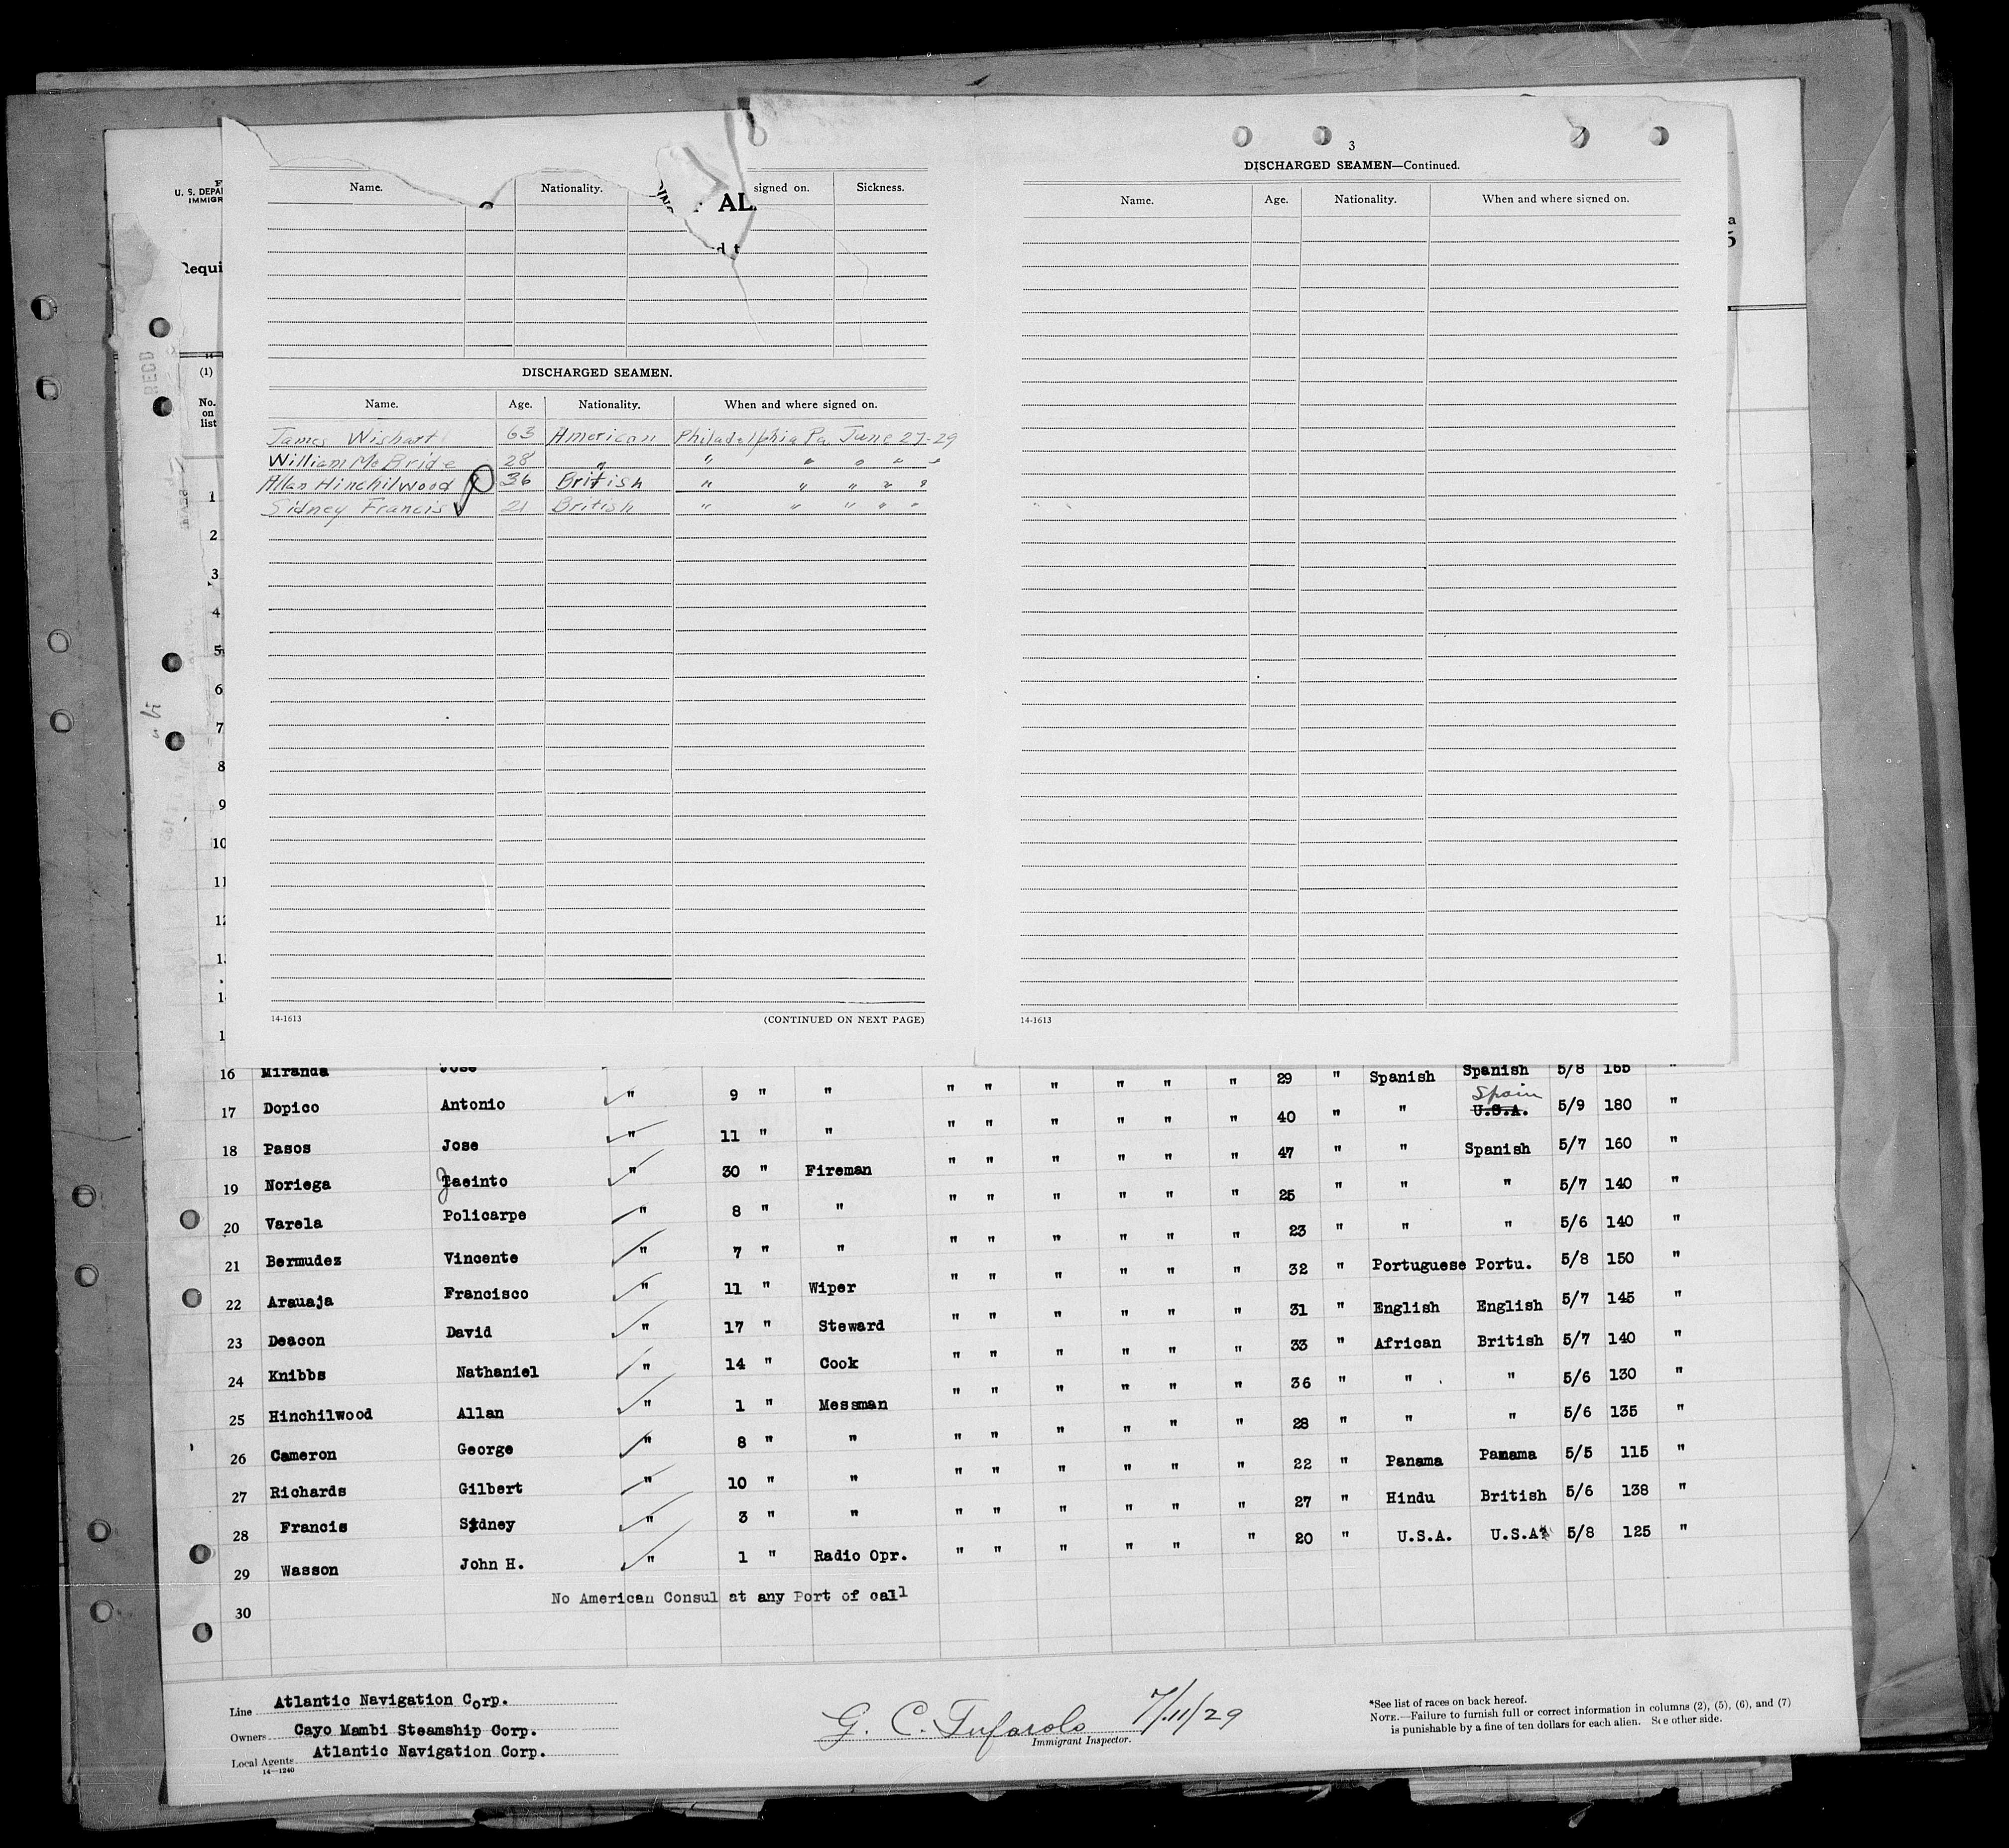 3
DISCHARGED SEAMEN—Continued.
Name. Nationality. signed on. Sickness.
AL
d t
U. S. DEPA
IMMIGR
equi
Name. Age. Nationality. When and where signed on.
DISCHARGED SEAMEN.
Name. Age. Nationality. When and where signed on.
James Wishart 63 American Philadelphia Pa June 27-29
William McBride 28 " " " " " "
Allan Hinchilwood 36 British " " " " "
Sidney Francis 21 British " " " " "
REC'D
(1)
No. on list
1
2
3
4
5
6
7
8
9
10
11
14-1613 (CONTINUED ON NEXT PAGE)
14-1613
16 Miranda Jose
17 Dopico Antonio " 9 " " " " " " " " 29 " Spanish Spanish 5/8 165 "
18 Pasos Jose " 11 " " " " " " " " 40 " " U.S.A. Spain 5/9 180 "
19 Noriega Jacinto " 30 " Fireman " " " " " " 47 " " Spanish 5/7 160 "
20 Varela Policarpe " 8 " " " " " " " " 25 " " " 5/7 140 "
21 Bermudez Vincente " 7 " " " " " " " " 23 " " " 5/6 140 "
22 Arauaja Francisco " 11 " Wiper " " " " " " 32 " Portuguese Portu. 5/8 150 "
23 Deacon David " 17 " Steward " " " " " " 31 " English English 5/7 145 "
24 Knibbs Nathaniel " 14 " Cook " " " " " " 33 " African British 5/7 140 "
25 Hinchilwood Allan " 1 " Messman " " " " " " 36 " " " 5/6 130 "
26 Cameron George " 8 " " " " " " " " 28 " " " 5/6 135 "
27 Richards Gilbert " 10 " " " " " " " " 22 " Panama Panama 5/5 115 "
28 Francis Sydney " 3 " " " " " " " " 27 " Hindu British 5/6 138 "
29 Wasson John H. " 1 " Radio Opr. " " " " " " 20 " U.S.A. U.S.A. 5/8 125 "
30 No American Consul at any Port of call
Line Atlantic Navigation Corp.
Owners Cayo Mambi Steamship Corp.
Local Agents Atlantic Navigation Corp.
14-1240
G. C. Tufarolo 7/11/29
Immigrant Inspector.
*See list of races on back hereof.
NOTE.—Failure to furnish full or correct information in columns (2), (5), (6), and (7)
is punishable by a fine of ten dollars for each alien. See other side.